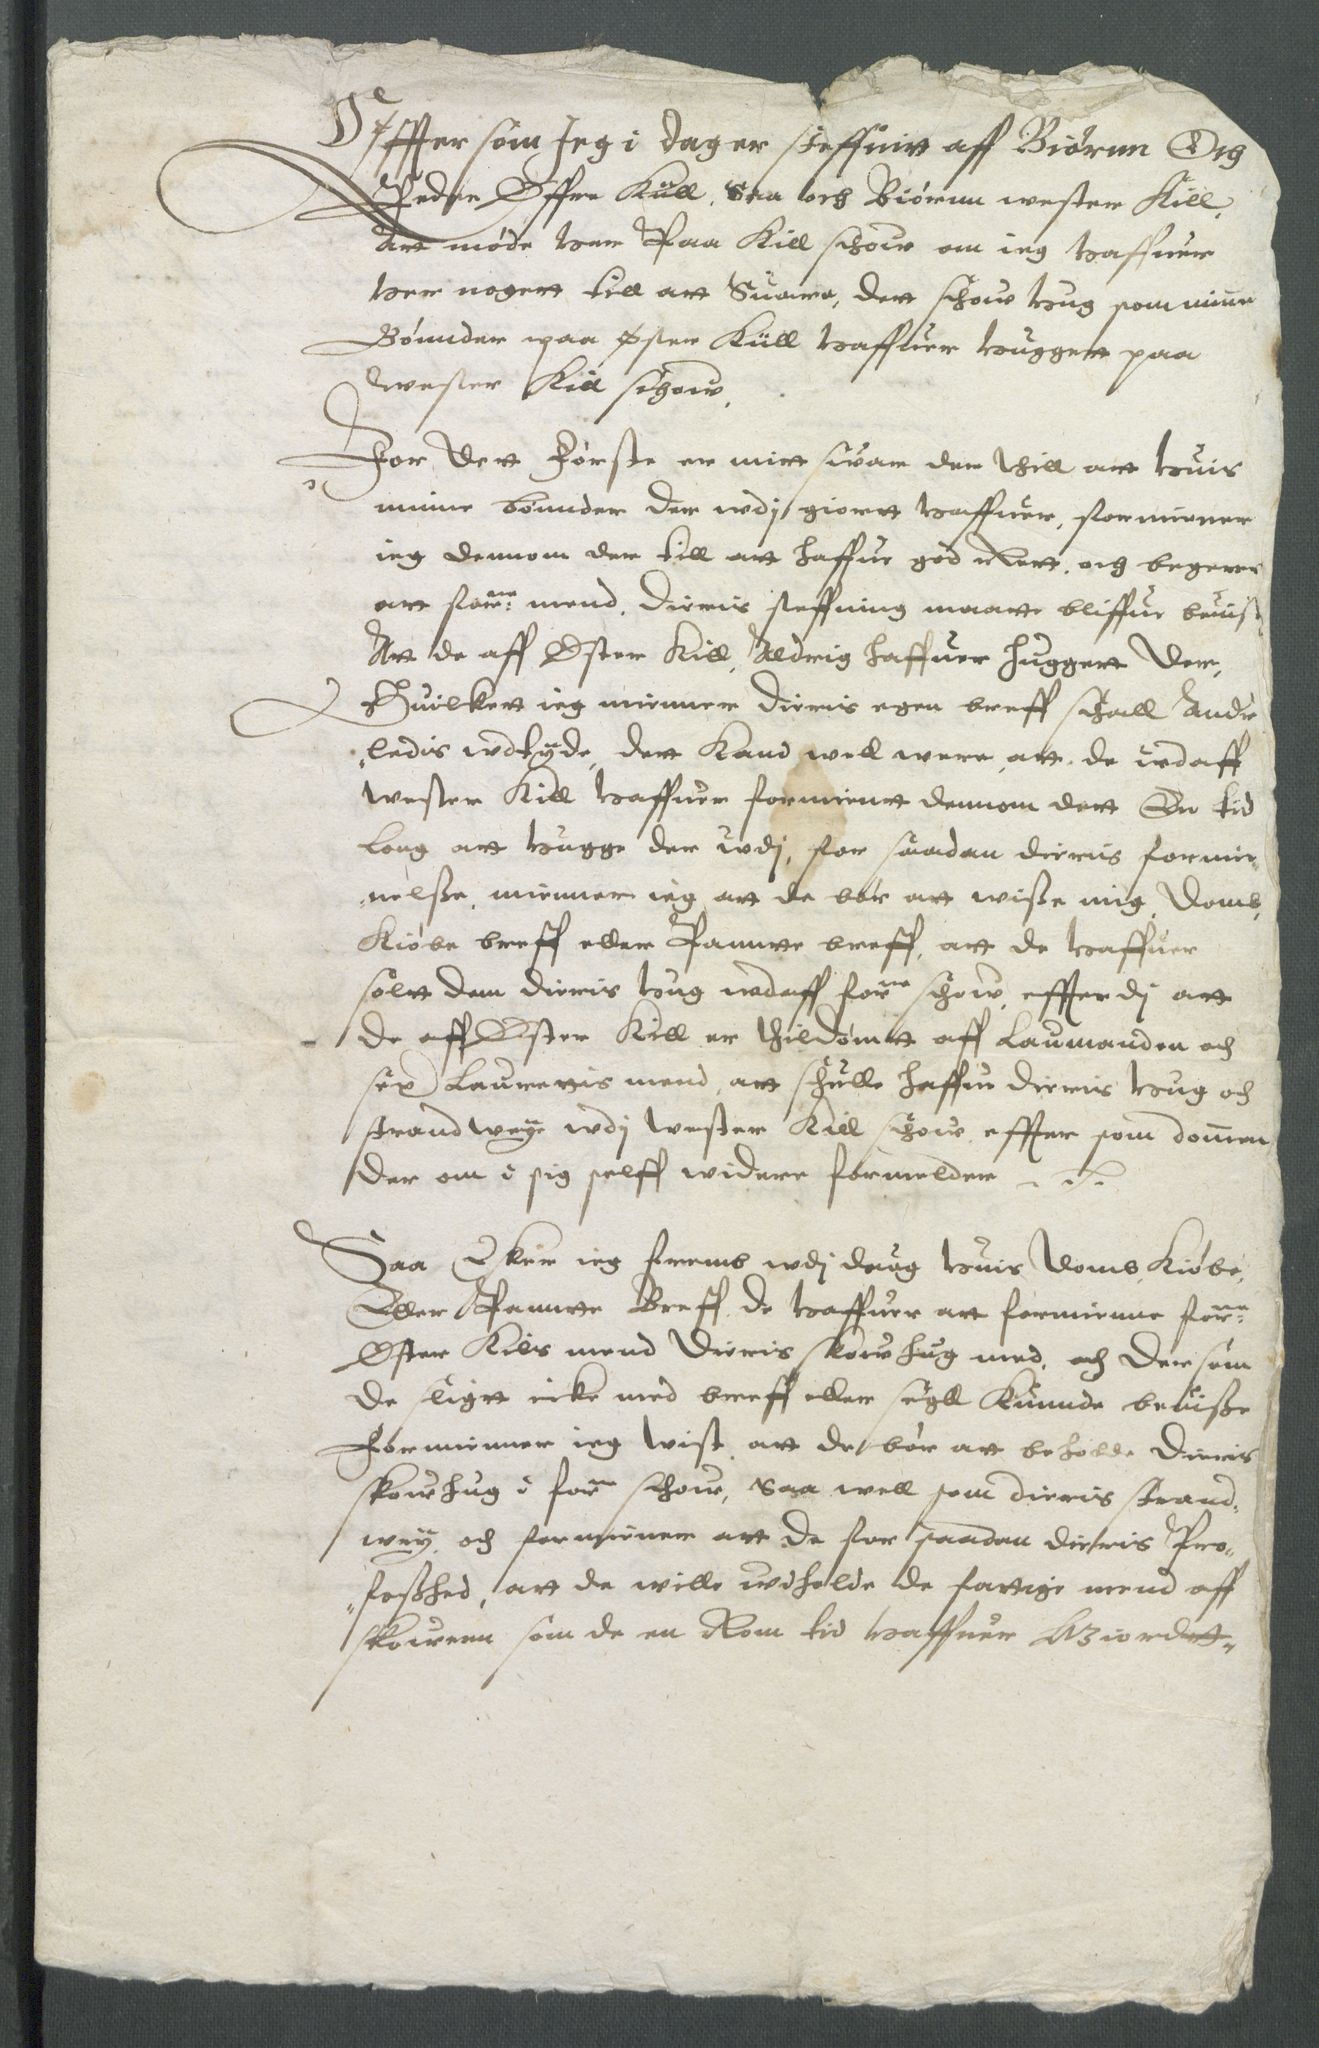 Effter som Jeg i dag er steffnit aff Biørnn Och
Peder Øffre Küll. Saa och Biørnn wester Kill,
Att møde her Paa Kill schow om ieg haffuer
her nogett till att Suare, dett schow hug som mine
Bønnder paa øster Küll haffuer huggett paa
wester Kill schow,
For Dett Første er mitt swar der thill att huis
minne bønnder der wdj giortt haffuer, formiener
ieg dennom der till att haffue god Rett. och begerer
att forne: mend. dieris steffning maatte bliffue beuist,
Att de aff Øster Kill, Aldrig haffuer huggett der,
Huilkett ieg miener dieris egen breff schall Andre
ledis wdtyde, dett Kand well were, att de udaff
wester Kill haffuer formientt dennom dett En tid
long att hugge der udj, for saadan dieris formie¬
nelsse, miener ieg att de bør att wisse mig, Doms,
Kiøbe breff eller Pantte breff, att de haffuer
soltt dem dieris hug udaff forne schow, effterdj att
de aff Øster Kill er thildømtt aff Laumanden och
sex Laurettis mend, att schulle haffue dieris hug och
strand weye wdj wester Kill schow effter som domen
der om i sig selff widere formelder
Saa Esker ieg frems wdj daug huis Doms, Kiøbe,
Eller Pantte Breff de haffuer att formiene forne:
Øster Kils mend Dieris skow hug med, och Der som
de sligtt icke med breff eller segll Kunnde beuisse
Formiener ieg wist att de bør att beholde Dieris
skow hug i forne schow, Saa well som dieris strand¬
wey, och formiener att de for saadan dieris Tro¬
tzhed, att de wille udholde de fattige mend aff
skowenn som de en Rom tid haffuer